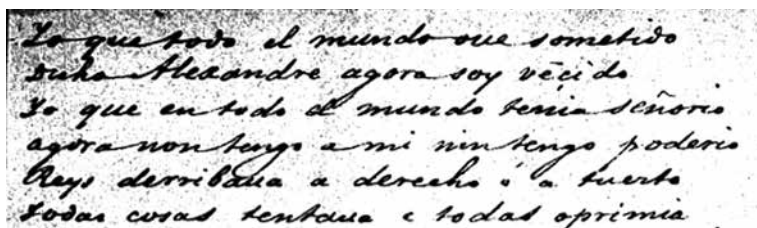 Yo que todo el mundo oue sometido
Dicho Alexandre agora soy vēcido
Yo que en todo el mundo tenia señorio
agora non tengo a mi nin tengo poderio
Reys derribaua a derecho ó a tuerto
Todas cosas tentaua e todas oprimia